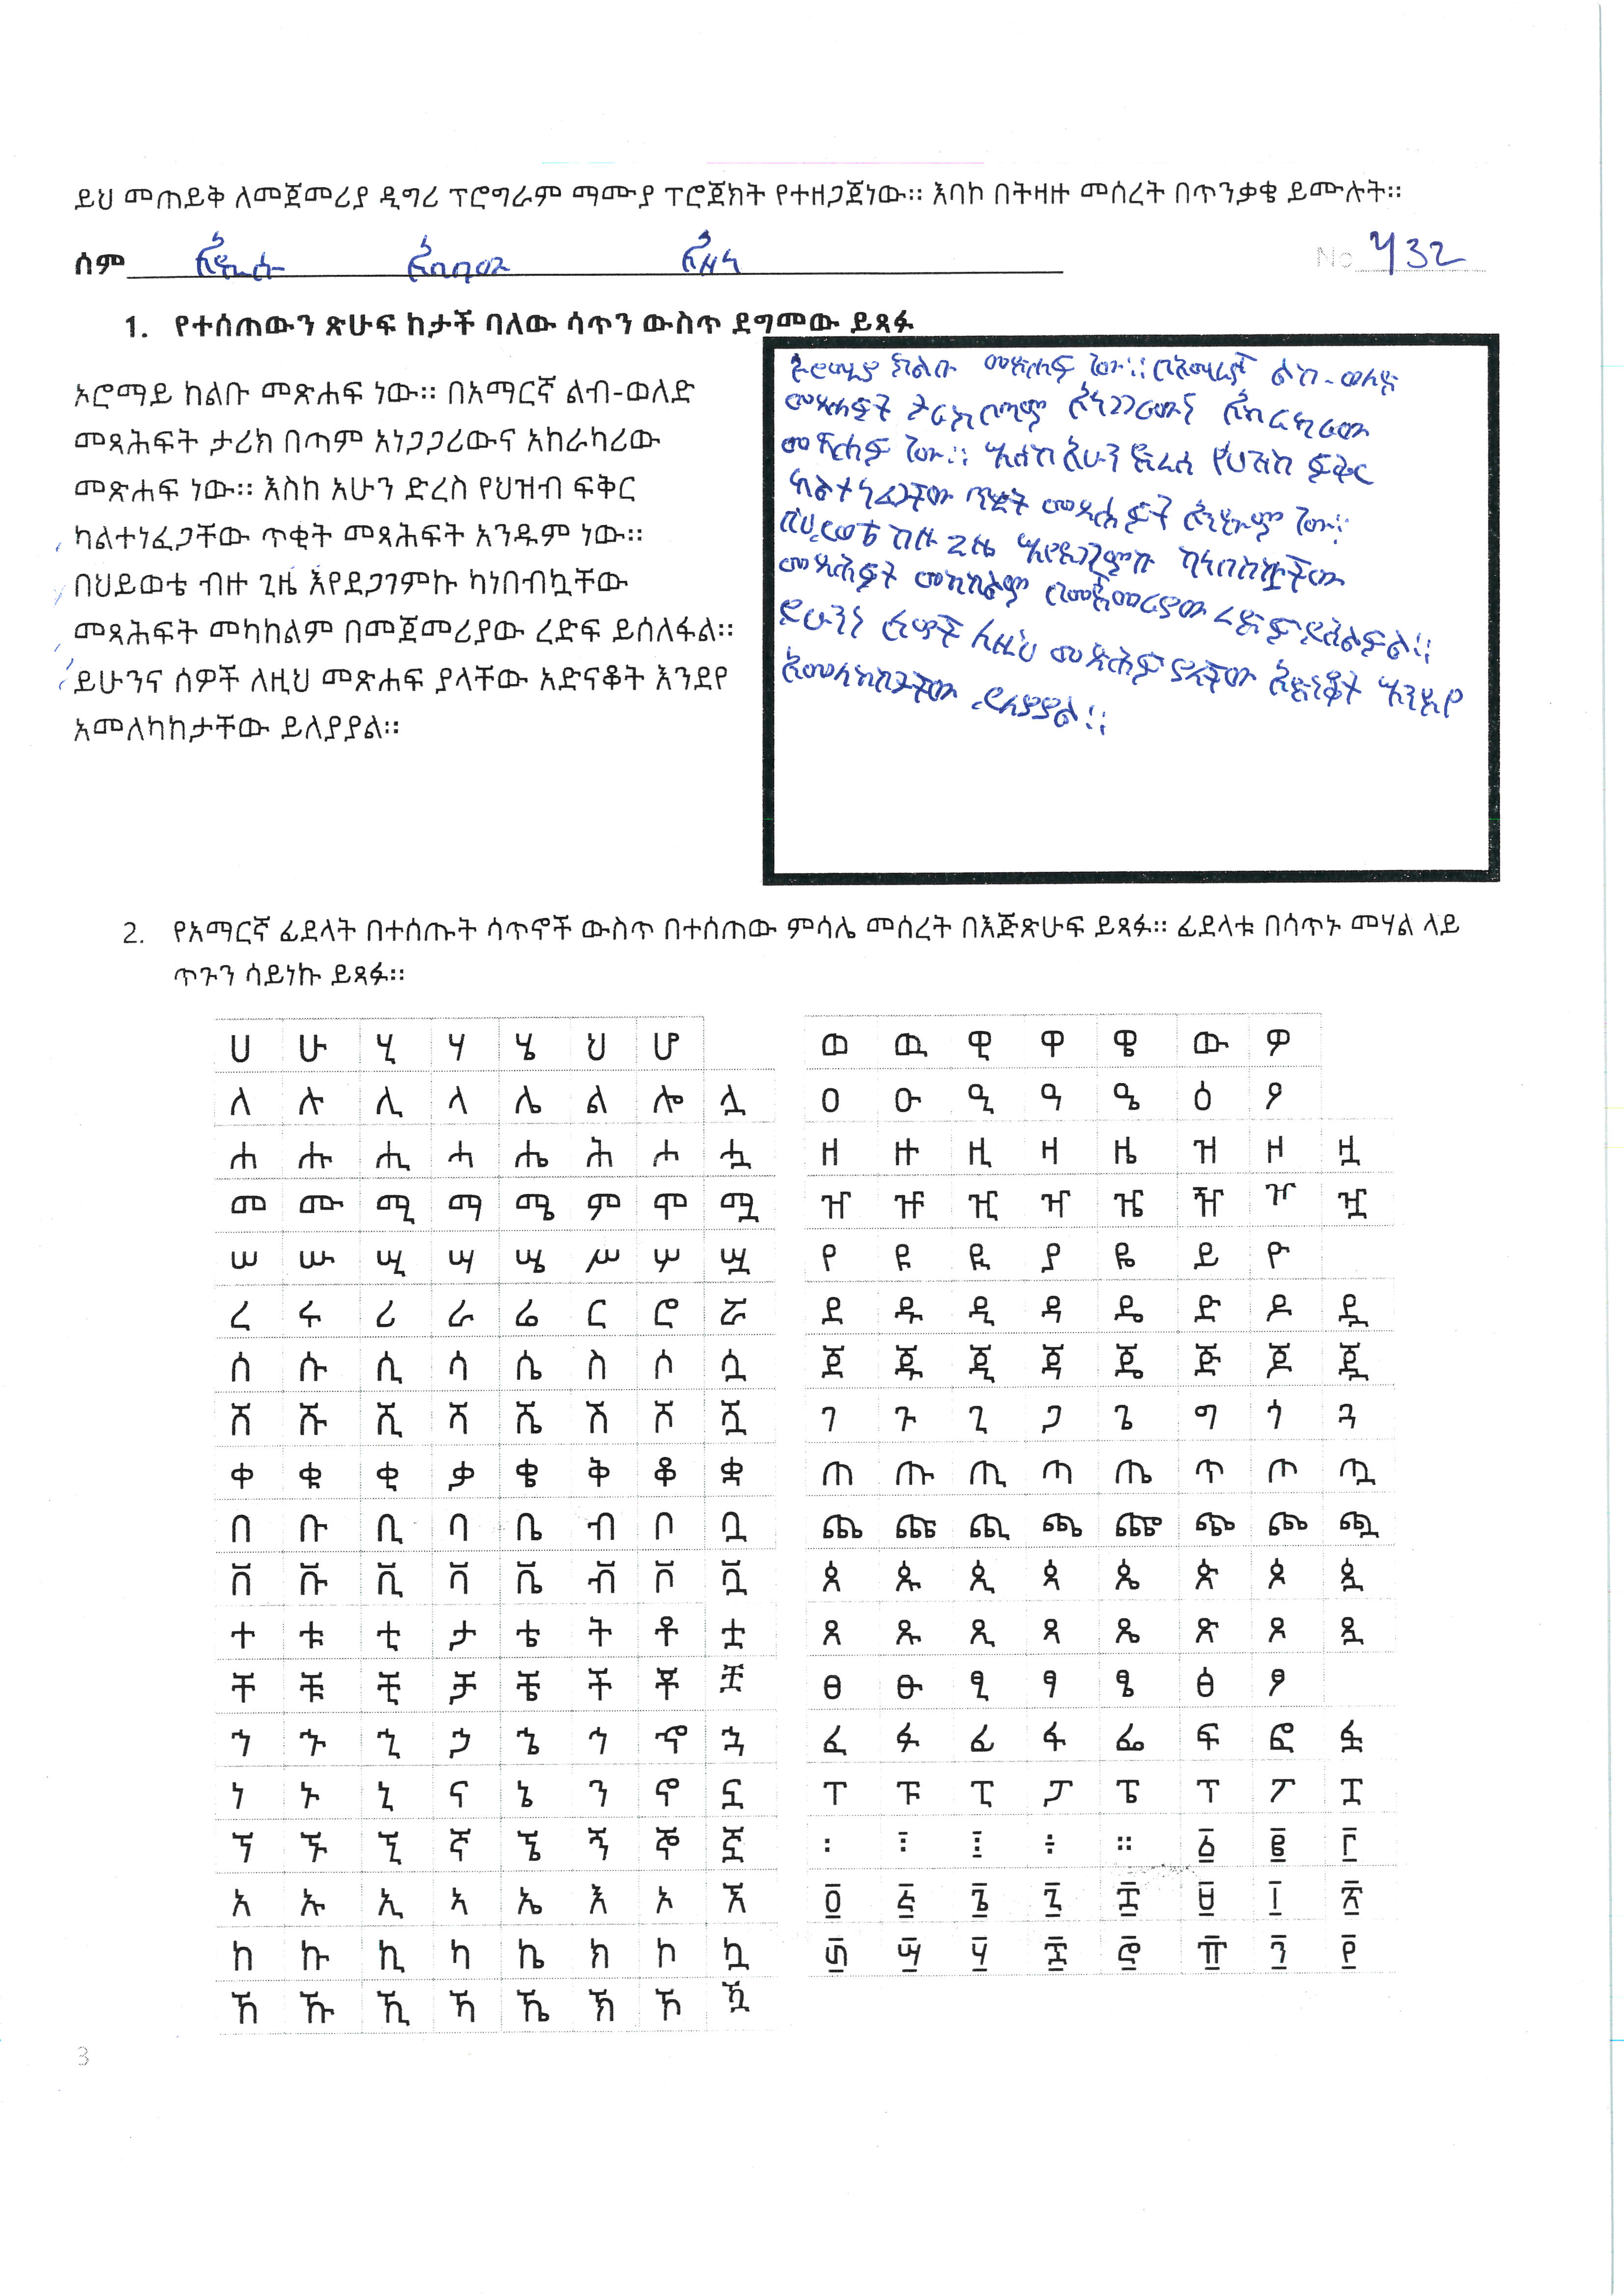 ይህ መጠይቅ ለመጀመሪያ ዲግሪ ፕሮግራም ማሙያ ፕሮጀክት የተዘጋጀነው። እባኮ በትዛዙ መሰረት በጥንቃቄ ይሙሉት።
ስም አዲሱ አበባው አዘለ No 432
1. የተሰጠውን ጽሁፍ ከታች ባለው ሳጥን ውስጥ ደግመው ይጻፉ
ኦሮማይ ከልቡ መጽሐፍ ነው። በአማርኛ ልብ-ወለድ
መጻሕፍት ታሪክ በጣም አነጋጋሪውና አከራካሪው
መጽሐፍ ነው። እስከ አሁን ድረስ የህዝብ ፍቅር
ካልተነፈጋቸው ጥቂት መጻሕፍት አንዱም ነው።
በህይወቴ ብዙ ጊዜ እየደጋገምኩ ካነበብኳቸው
መጻሕፍት መካከልም በመጀመሪያው ረድፍ ይሰለፋል።
ይሁንና ሰዎች ለዚህ መጽሐፍ ያላቸው አድናቆት እንደየ
አመለካከታቸው ይለያያል።
ኦሮማይ ከልቡ መጽሐፍ ነው። በአማርኛ ልብ-ወለድ
መጻሕፍት ታሪክ በጣም አነጋጋሪውና አከራካሪው
መጽሐፍ ነው። እስከ አሁን ድረስ የህዝብ ፍቅር
ካልተነፈጋቸው ጥቂት መጻሕፍት አንዱም ነው።
በህይወቴ ብዙ ጊዜ እየደጋገምኩ ካነበብኳቸው
መጻሕፍት መካከልም በመጀመሪያው ረድፍ ይሰለፋል።
ይሁንና ሰዎች ለዚህ መጽሐፍ ያላቸው አድናቆት እንደየ
አመለካከታቸው ይለያያል።
2. የአማርኛ ፊደላት በተሰጡት ሳጥኖች ውስጥ በተሰጠው ምሳሌ መሰረት በእጅጽሁፍ ይጻፉ። ፊደላቱ በሳጥኑ መሃል ላይ
ጥጉን ሳይነኩ ይጻፉ።
ሀ ሁ ሂ ሃ ሄ ህ ሆ
ለ ሉ ሊ ላ ሌ ል ሎ ሏ
ሐ ሑ ሒ ሓ ሔ ሕ ሖ ሗ
መ ሙ ሚ ማ ሜ ም ሞ ሟ
ሠ ሡ ሢ ሣ ሤ ሥ ሦ ሧ
ረ ሩ ሪ ራ ሬ ር ሮ ሯ
ሰ ሱ ሲ ሳ ሴ ስ ሶ ሷ
ሸ ሹ ሺ ሻ ሼ ሽ ሾ ሿ
ቀ ቁ ቂ ቃ ቄ ቅ ቆ ቋ
በ ቡ ቢ ባ ቤ ብ ቦ ቧ
ቨ ቩ ቪ ቫ ቬ ቭ ቮ ቯ
ተ ቱ ቲ ታ ቴ ት ቶ ቷ
ቸ ቹ ቺ ቻ ቼ ች ቾ ቿ
ኀ ኁ ኂ ኃ ኄ ኅ ኆ ኋ
ነ ኑ ኒ ና ኔ ን ኖ ኗ
ኘ ኙ ኚ ኛ ኜ ኝ ኞ ኟ
አ ኡ ኢ ኣ ኤ እ ኦ ኧ
ከ ኩ ኪ ካ ኬ ክ ኮ ኳ
ኸ ኹ ኺ ኻ ኼ ኽ ኾ ዃ
ወ ዉ ዊ ዋ ዌ ው ዎ
ዐ ዑ ዒ ዓ ዔ ዕ ዖ
ዘ ዙ ዚ ዛ ዜ ዝ ዞ ዟ
ዠ ዡ ዢ ዣ ዤ ዥ ዦ ዧ
የ ዩ ዪ ያ ዬ ይ ዮ
ደ ዱ ዲ ዳ ዴ ድ ዶ ዷ
ጀ ጁ ጂ ጃ ጄ ጅ ጆ ጇ
ገ ጉ ጊ ጋ ጌ ግ ጎ ጓ
ጠ ጡ ጢ ጣ ጤ ጥ ጦ ጧ
ጨ ጩ ጪ ጫ ጬ ጭ ጮ ጯ
ጰ ጱ ጲ ጳ ጴ ጵ ጶ ጷ
ጸ ጹ ጺ ጻ ጼ ጽ ጾ ጿ
ፀ ፁ ፂ ፃ ፄ ፅ ፆ
ፈ ፉ ፊ ፋ ፌ ፍ ፎ ፏ
ፐ ፑ ፒ ፓ ፔ ፕ ፖ ፗ
፡ ፣ ፤ ፥ ። ፩ ፪ ፫
፬ ፭ ፮ ፯ ፰ ፱ ፲ ፳
፴ ፵ ፶ ፷ ፸ ፹ ፺ ፻
3